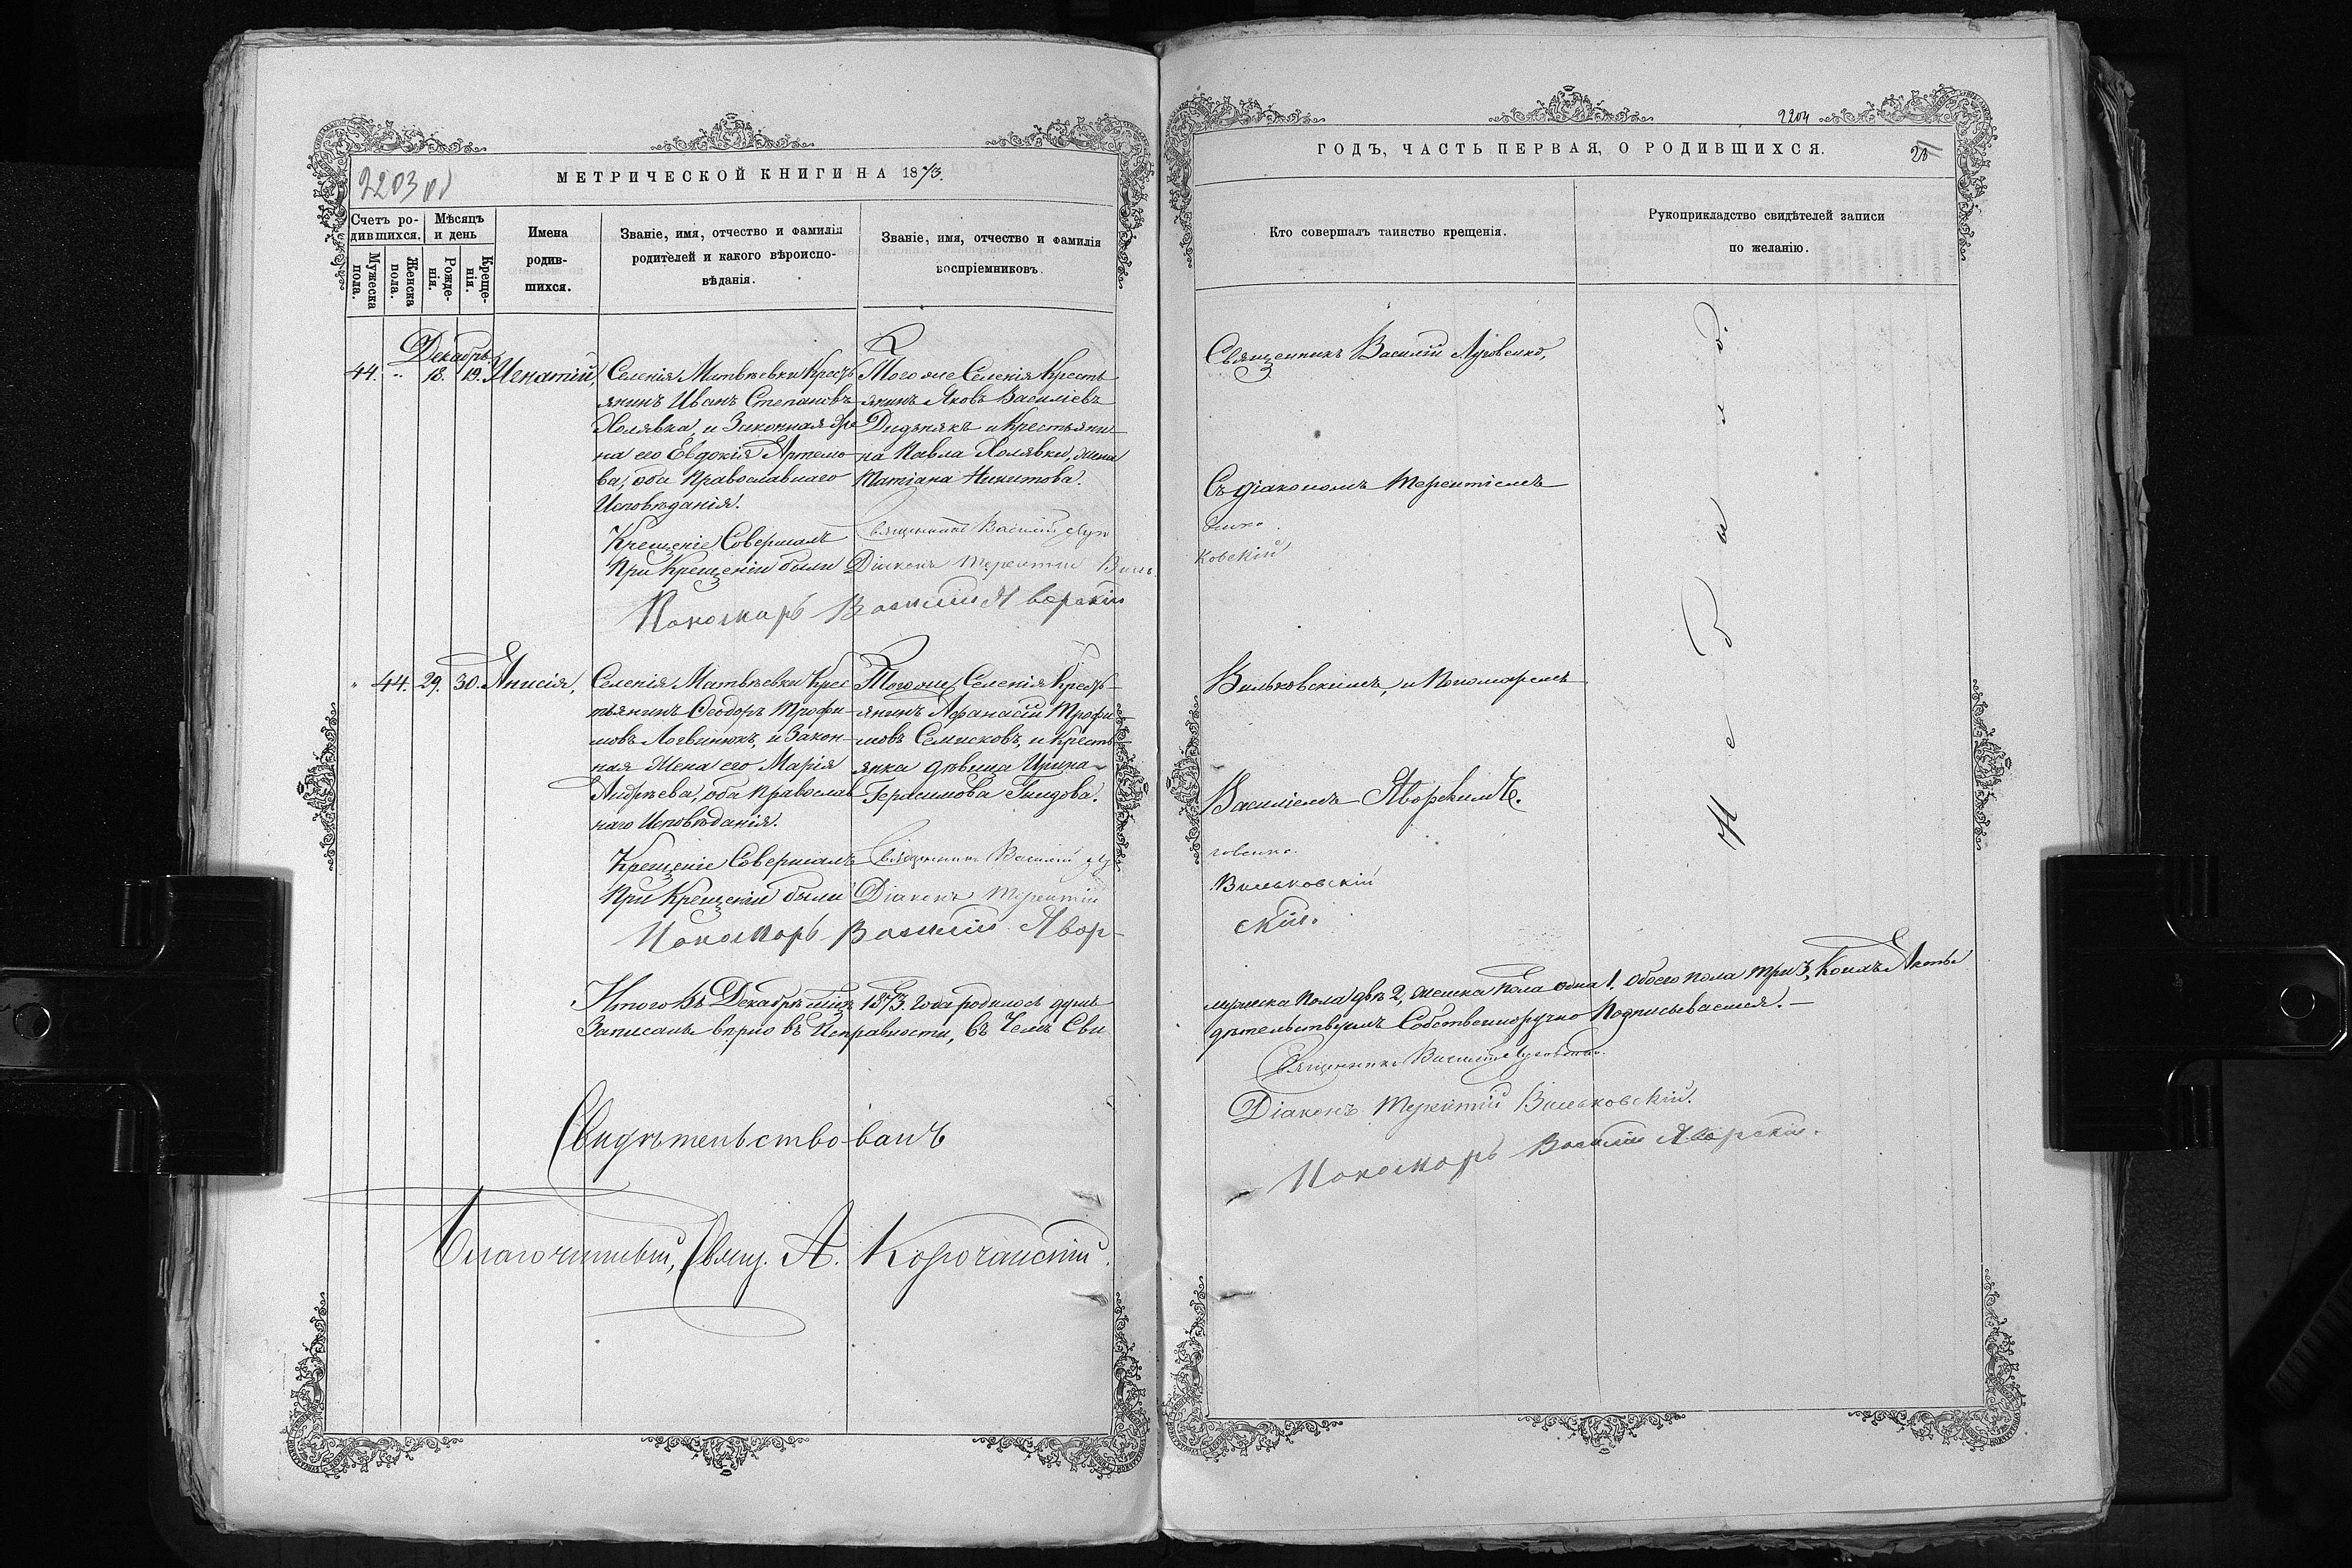 2203 об
МЕТРИЧЕСКОЙ КНИГИ НА 1873.
Счетъ ро-
дившихся.
Мѣсяцъ
и день
Мужеска
пола.
Женска
пола.
Рожде-
нія.
Креще-
нія.
Имена
родив-
шихся.
Званіе, имя, отчество и фамилія
родителей и какого вѣроиспо-
вѣданія.
Званіе, имя, отчество и фамилія
воспріемниковъ.
Декабрь
44. " 18. 19. Игнатій,
Селенія Матвѣевки Кресть
янинъ Иванъ Степановъ
Холявка, и Законная Же
на его Евдокія Артемо
ва, оба Православнаго
Исповѣданія.
Тогоже Селенія Кресть
янинъ Яковъ Василіевъ
Дидянякъ и Крестьяни-
на Павла Холявки, жена
Татіана Никитова.
Крещеніе Совершалъ Священникъ Василій Луго
При Крещеніи были Діаконъ Терентій Виль
Пономарь Василій Яворскій
" 44. 29. 30. Анисія,
Селенія Матвѣевки Крес
тьянинъ Ѳеодоръ Трофи
мовъ Логвинюкъ, и Закон-
ная Жена его Марія
Андрѣева, оба Православ
наго Исповѣданія.
Тогоже Селенія Кресть-
янинъ Афанасій Трофи
мовъ Семисковъ, и Кресть
янка дѣвица Ирина
Герасимова Гнидова.
Крещеніе Совершалъ Священникъ Василій Лу
При Крещеніи были Діаконъ Терентій
Пономарь Василій Явор-
Итого Въ Декабрѣ мѣцѣ 1873. года родилось душъ
Записанъ вѣрно въ Исправности, въ чемъ Сви
Свидѣтельствовалъ
Благочинный, Свящ. А. Корочанскій.
2204
ГОДЪ, ЧАСТЬ ПЕРВАЯ, О РОДИВШИХСЯ.
Кто совершалъ таинство крещенія.
Рукоприкладство свидѣтелей записи
по желанію.
Священникъ Василій Луговенко,
Съ діакономъ Терентіемъ
венко.
ковскій
Вильковскимъ, и Пономаремъ
Василіемъ Яворскимъ.
говенко.
Вильковскій
скій.
мужеска пола двѣ 2, женска пола одна 1. Обоего пола три 3, Коихъ Акты
дѣтельствуемъ Собственноручно Подписываемся. —
Священникъ Василій Луговенко.
Діаконъ Терентій Вильковскій.
Пономарь Василій Яворскій.